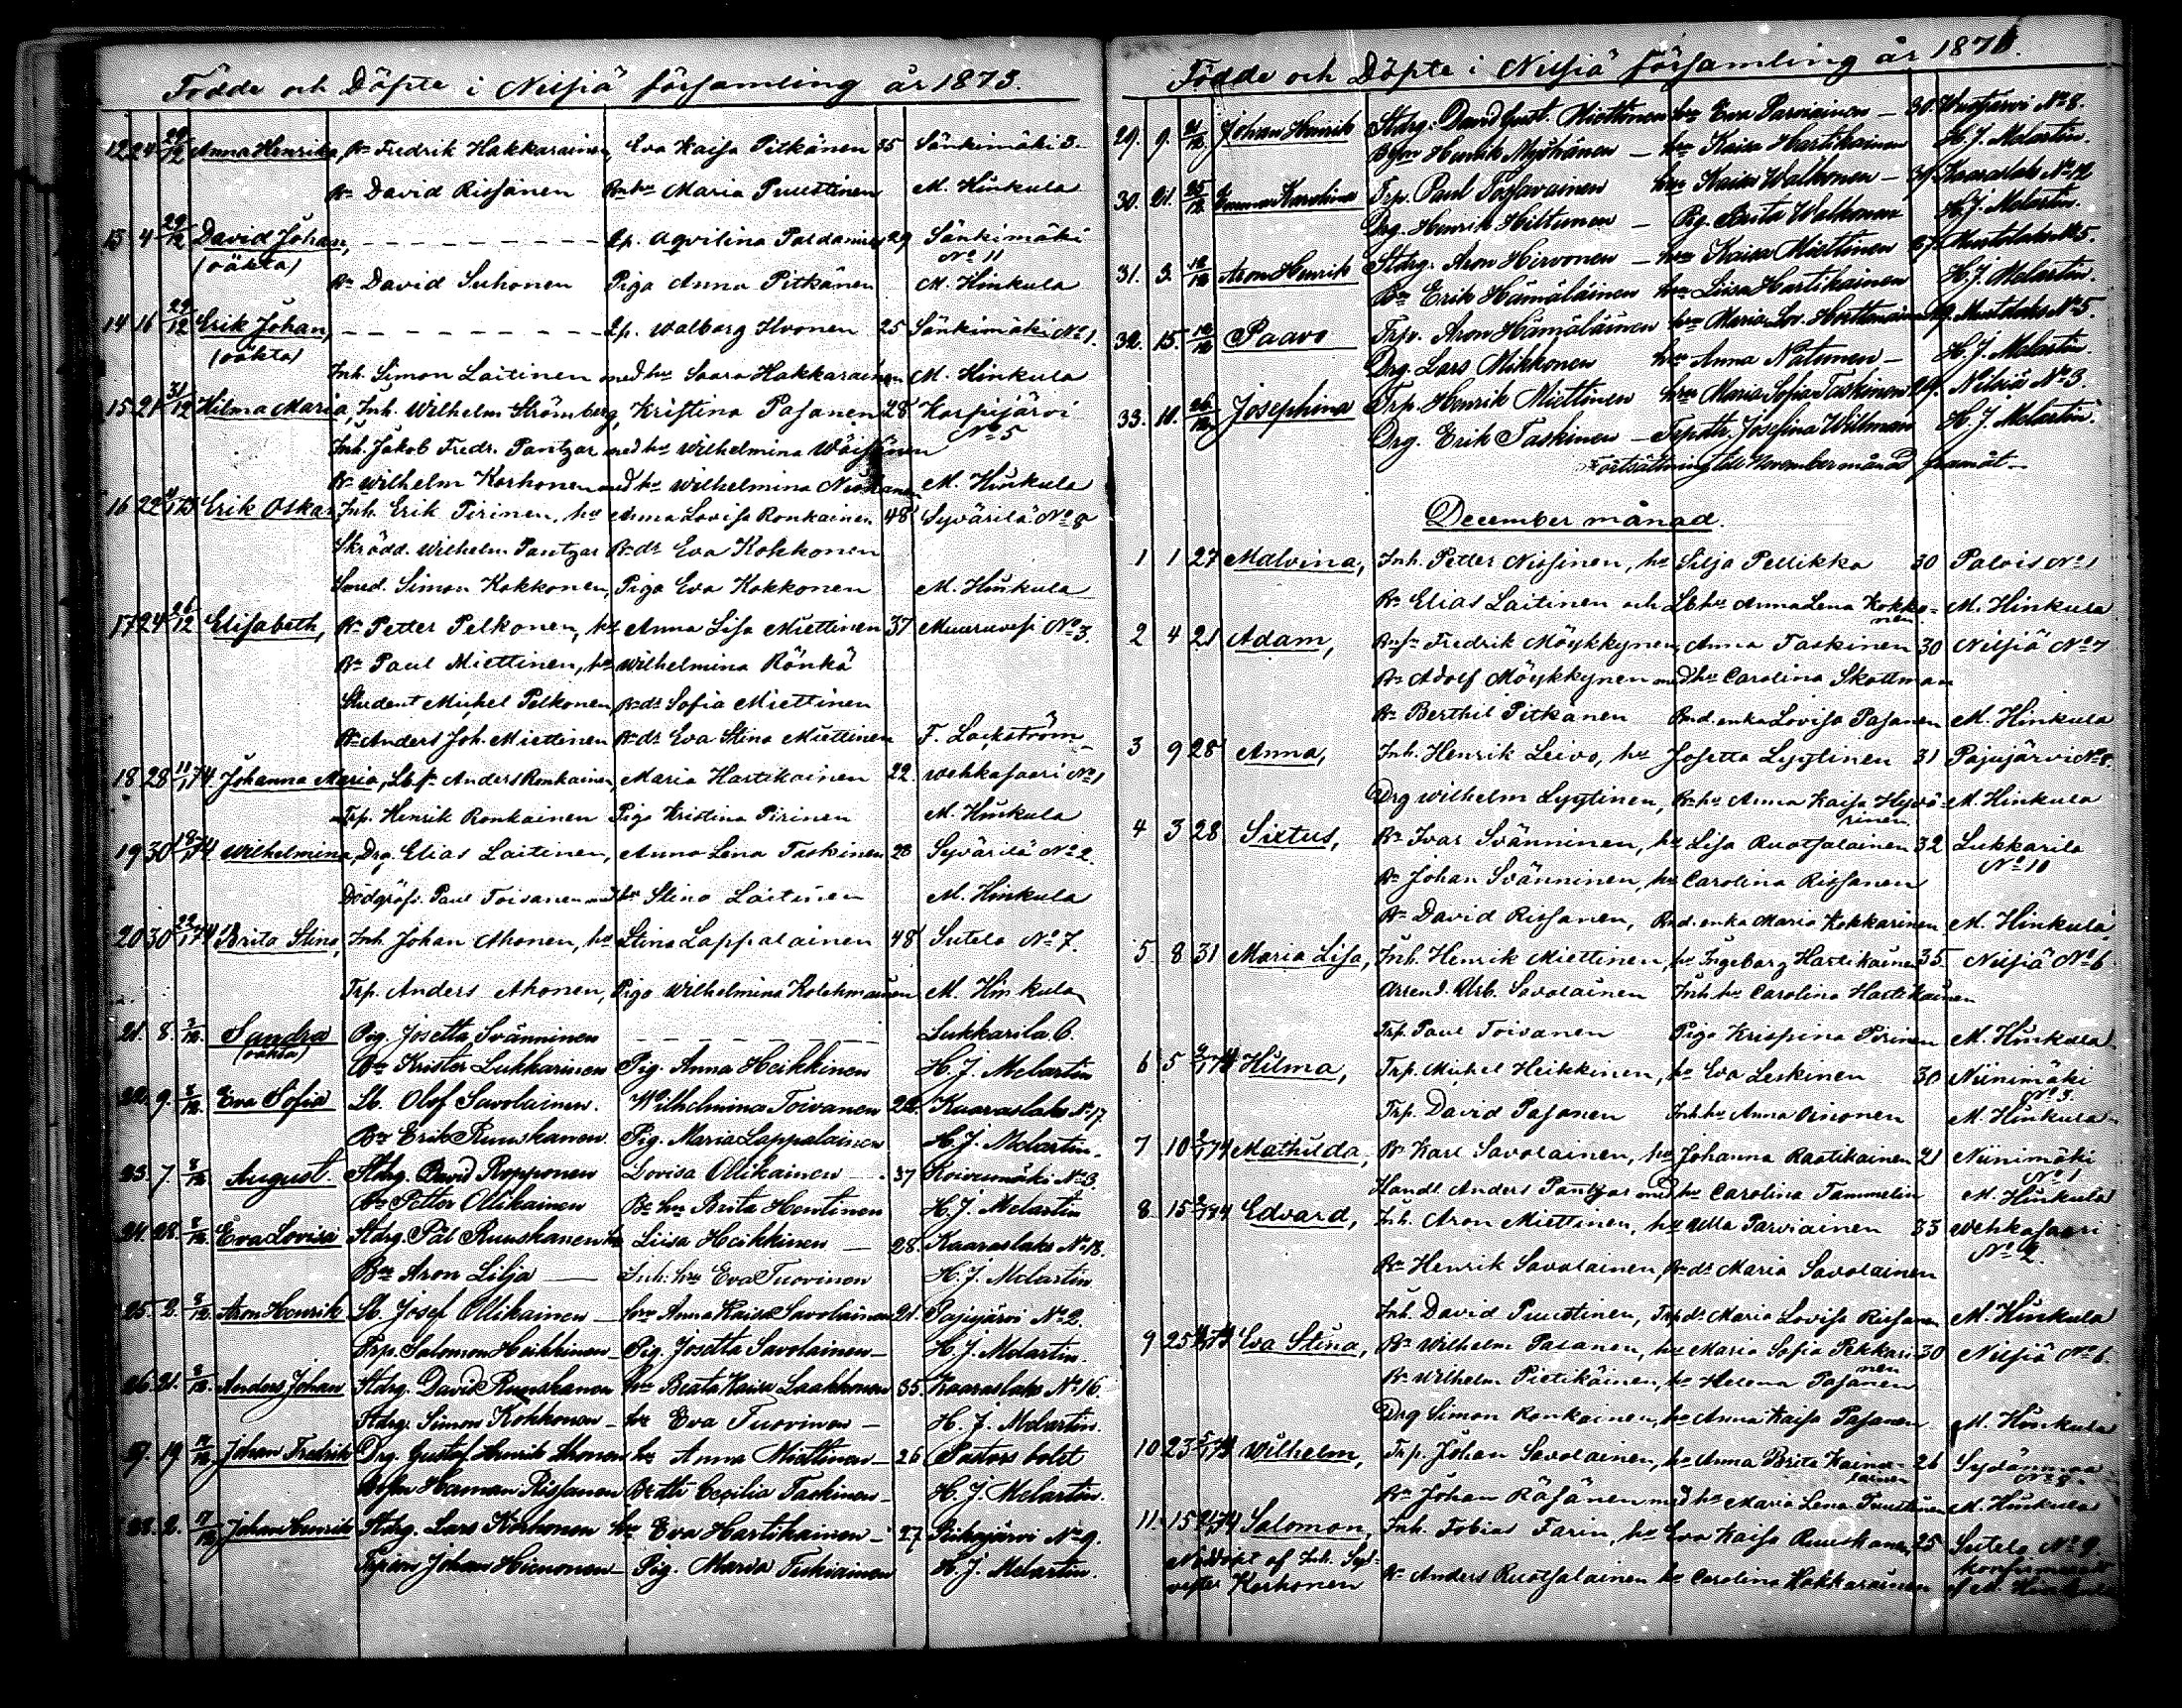 Födde och Döpte i Nilsiä församling år 1873.
12 24 29/12 Anna Henrika, Bn Fredrik Hakkarainen, Eva Kaisa Pitkänen 35 Sänkimäki 3.
Bn David Rissanen Bnhu Maria Puustinen M. Hinkula
13 4 29/12 David Johan, Lp. Aqvilina Paldanius 29 Sänkimäki
(oäkta) No 11
Bn David Suhonen Piga Anna Pitkänen M. Hinkula
14 16 29/12 Erik Johan, Lp. Walborg Ikonen 25 Sänkimäki No 1.
(oäkta)
Inh. Simon Laitinen med hu Saara Hakkarainen M. Hinkula
15 21 31/12 Hilma Maria, Inh. Wilhelm Strömberg, Kristina Pasanen 28 Karpijärvi
No 5
Inh. Jakob Fredr. Pantzar med hu Wilhelmina Wäisänen
Bn Wilhelm Korhonen med hu Wilhelmina M. Hinkula
16 22 Erik Oskar, Inh. Erik Pirinen, hu Anna Lovisa Ronkainen 48 Syvärilä No 8
Skrädd. Wilhelm Pantzar Bn dr Eva Kokkonen
Smed. Simon Kokkonen, Piga Eva Kokkonen M. Hinkula
17 24 26/12 Elisabeth, Bn Petter Pelkonen, hu Anna Lisa Miettinen 37 Muuruvesi No 3.
Bn Paul Miettinen, hu Wilhelmina Rönkä
Student Michel Pelkonen, Bn dr Sofia Miettinen
Bn Anders Joh. Miettinen Bn dr Eva Stina Miettinen F. Lackström
18 28 11/1 74 Johanna Maria, Lb sn Anders Ronkainen, Maria Hartikainen 22. Wehkasaari No 1
Trp. Henrik Ronkainen Piga Kristina Pirinen M. Hinkula
19 30 Wilhelmina, Drg. Elias Laitinen, Anna Lena Taskinen 28 Syvärilä No 2.
Dödgräfv. Paul Toivanen med hu Stina Laitinen M. Hinkula
20 30 Brita Stina, Inh. Johan Ahonen, hu Stina Lappalainen 48 Sutela No 7.
Trp. Anders Ahonen, Piga Wilhelmina Kolehmainen M. Hinkula
21. 8. 3/12. Sandra Pig. Josetta Svänninen Lukkarila 6.
(oäkta)
Bn Krister Lukkarinen Pig. Anna Heikkinen H. J. Melartin
22. 9. 3/12. Eva Sofia Lb. Olof Savolainen. Wilhelmina Toivanen 22. Kaaraslaks No 17.
Bn Erik Ruuskanen. Pig. Maria Lappalainen H. J. Melartin.
23. 7. August. Stdrg. David Ropponen Lovisa Ollikainen 37 Koivumäki No 3.
Bn Petter Ollikainen Bn hu Brita Hentinen H. J. Melartin
24. 28. Eva Lovisa Stdrg. Pål Ruuskanen hu Liisa Heikkinen 28. Kaaraslaks No 18.
Bn Aron Lilja Inh. hu Eva Tuovinen H. J. Melartin
25. 2. Aron Henrik Lb. Josef Ollikainen hu Anna Kaisa Savolainen 21. Pajujärvi No 2.
Trp. Salomon Heikkinen Pig. Josetta Savolainen H. J. Melartin.
26. 21. Anders Johan Stdrg. David Ruuskanen hu Beata Kaisa Laakkonen 35. Kaaraslaks No 16.
Stdrg. Simon Kokkonen hu Eva Tuovinen H. J. Melartin.
27. 19. Johan Fredrik Drg. Gustaf Henrik hu Anna Miettinen 26 Pastors bolet
Herman Rissanen Cecilia Taskinen H. J. Melartin.
28. 2. Johan Henrik Stdrg. Lars Korhonen hu Eva Hartikainen 27 No 9.
Johan Pig. Maria H. J. Melartin.
Födde och Döpte i Nilsiä församling år 1873.
29. 9. 21/12 Johan Henrik Stdrg. David Gust. Miettonen hu Eva Parviainen 30. No 8.
Henrik Mykkänen hu Kaisa Hartikainen H. J. Melartin.
30. 21. 25/12 Karolina Trp. Paul hu Kaisa Walkonen Kaaraslaks No 12
Drg. Henrik Hiltunen Pig. Walkonen H. J. Melartin.
31. 3. Aron Henrik Stdrg. Aron Hirvonen hu Kaisa Miettinen No 5.
Bn Erik Hämäläinen hu Liisa Hartikainen H. J. Melartin.
32. 15. Paavo Trp. Aron Hämäläinen hu Maria Lov. No 5.
Drg. Lars Mikkonen hu Anna H. J. Melartin.
33. 10. 26/12 Josephina Trp. Henrik Miettinen hu Maria Sofia Taskinen 29. Nilsiä No 3.
Drg. Erik Taskinen Trp dtr. Josefina Wiltman H. J. Melartin.
Fortsättning till November månad framåt
December månad.
1 1 27 Malvina, Inh. Petter Nissinen, hu Silja Pellikka 30 Palois No 1
Bn Elias Laitinen och Lb hu Anna Lena Kokko- M. Hinkula
nen
2 4 21 Adam, Bn sn Fredrik Möykkynen, Anna Taskinen 30 Nilsiä No 7
Bn Adolf Möykkynen med hu Carolina Skottman
Bn Berthil Pitkänen Bnd. enka Lovisa Pasanen M. Hinkula
3 9 28 Anna, Inh. Henrik Leivo, hu Josetta Lyytinen 31 Pajujärvi No 8.
Drg Wilhelm Lyytinen, Bn hu Anna Kaisa Hyvä- M. Hinkula
rinen
4 3 28 Sixtus, Bn Ivar Svänninen, hu Lisa Ruotsalainen 32 Lukkarila
No 10
Bn Johan Svänninen, hu Carolina Rissanen
Bn David Rissanen, Bnd. enka Maria Kokkarinen M. Hinkula
5 8 31 Maria Lisa, Inh. Henrik Miettinen, hu Ingeborg Hartikainen 35 Nilsiä No 6
Arrend. Urb. Savolainen Inh hu Carolina Hartikainen
Trp. Paul Toivanen Piga Krispina Pirinen M. Hinkula
6 5 Hilma, Trp. Michel Heikkinen, hu Eva Leskinen 30 Niinimäki
No 3.
Trp. David Pasanen Inh hu Anna M. Hinkula
7 10 Mathilda, Bn Karl Savolainen, hu Johanna Raatikainen 21 Niinimäki
No 1
Handl. Anders Pantzar med hu Carolina Tammelin M. Hinkula
8. 15 Edvard, Inh. Aron Miettinen, hu Ulla Parviainen 33 Wehkasaari
No 2.
Bn Henrik Savolainen, Bn dr Maria Savolainen
Inh. David Puustinen, Trp dr Maria Lovisa Rissanen M. Hinkula
9 25 Eva Stina, Bn Wilhelm Pasanen, hu Maria Sofia Pekkari- 30 Nilsiä No 6.
nen
Bn Wilhelm Pietikäinen, hu Helena Pasanen
Drg Simon Ronkainen, hu Anna Kaisa Pasanen M. Hinkula
10 23 Wilhelm, Trp. Johan Savolainen, hu Anna Brita Kainu- 26 Sydänmaa
lainen No 8.
Bn Johan Räsänen med hu Maria Lena Puustinen M. Hinkula
11. 15 Salomon, Inh. Tobias Farin, hu Eva Kaisa Ruuskanen, 25 Sutela No 9.
Nöddöpt af Inh. Syl-
vester Korhonen Bn Anders Ruotsalainen hu Carolina Hakkarainen
af M. Hinkula